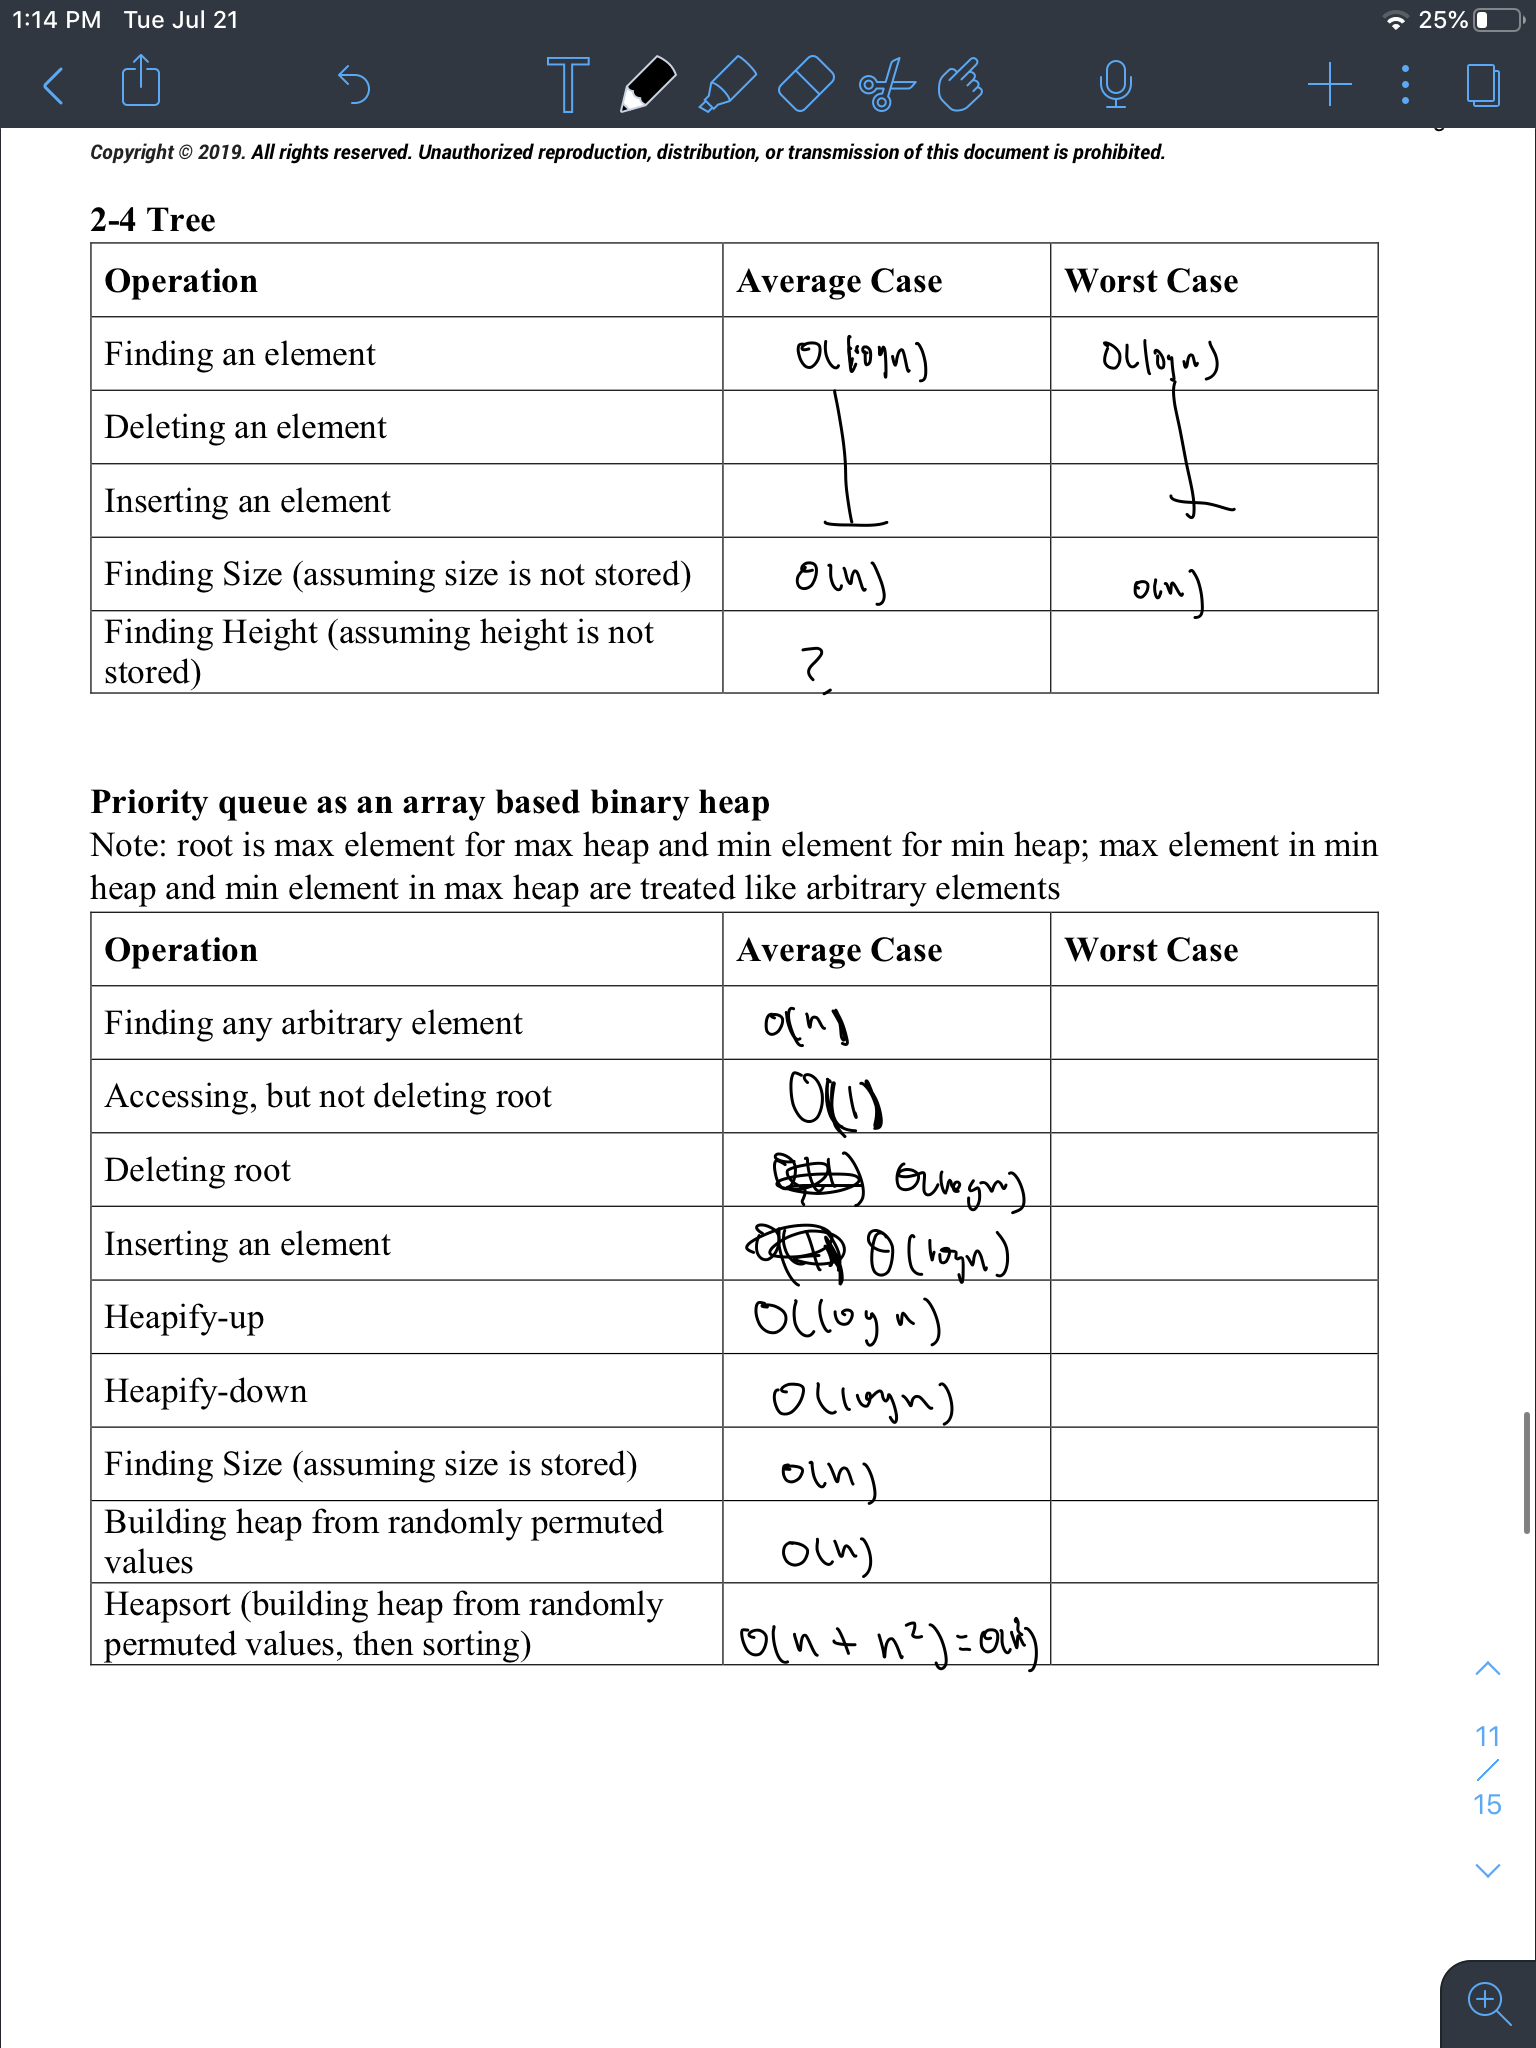 1:14 PM Tue Jul 21 25%
Copyright © 2019. All rights reserved. Unauthorized reproduction, distribution, or transmission of this document is prohibited.
2-4 Tree
Operation Average Case Worst Case
Finding an element O(logn) O(logn)
Deleting an element
Inserting an element
Finding Size (assuming size is not stored) O(n) O(n)
Finding Height (assuming height is not
stored) ?
Priority queue as an array based binary heap
Note: root is max element for max heap and min element for min heap; max element in min
heap and min element in max heap are treated like arbitrary elements
Operation Average Case Worst Case
Finding any arbitrary element O(n)
Accessing, but not deleting root O(1)
Deleting root O(logn)
Inserting an element O(logn)
Heapify-up O(logn)
Heapify-down O(logn)
Finding Size (assuming size is stored) O(n)
Building heap from randomly permuted
values O(n)
Heapsort (building heap from randomly
permuted values, then sorting) O(n + n²) = O(n²)
11
/
15